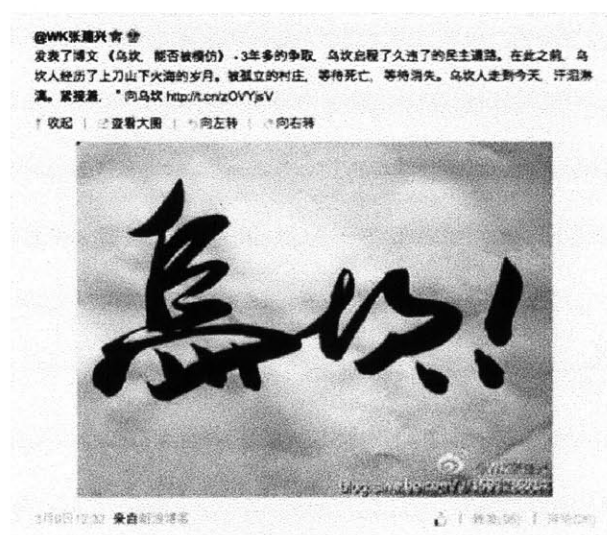 @WK张建兴
发表了博文 《乌坎，能否被模仿》 - 3年多的争取，乌坎启程了久违了的民主道路。在此之前，乌
坎人经历了上刀山下火海的岁月。被孤立的村庄，等待死亡，等待消失。乌坎人走到今天，汗泪淋
漓。紧接着，"向乌坎 http://t.cn/zOVYjsV
收起 | 查看大图 | 向左转 | 向右转
烏坎!
3月9日12:32 来自新浪博客